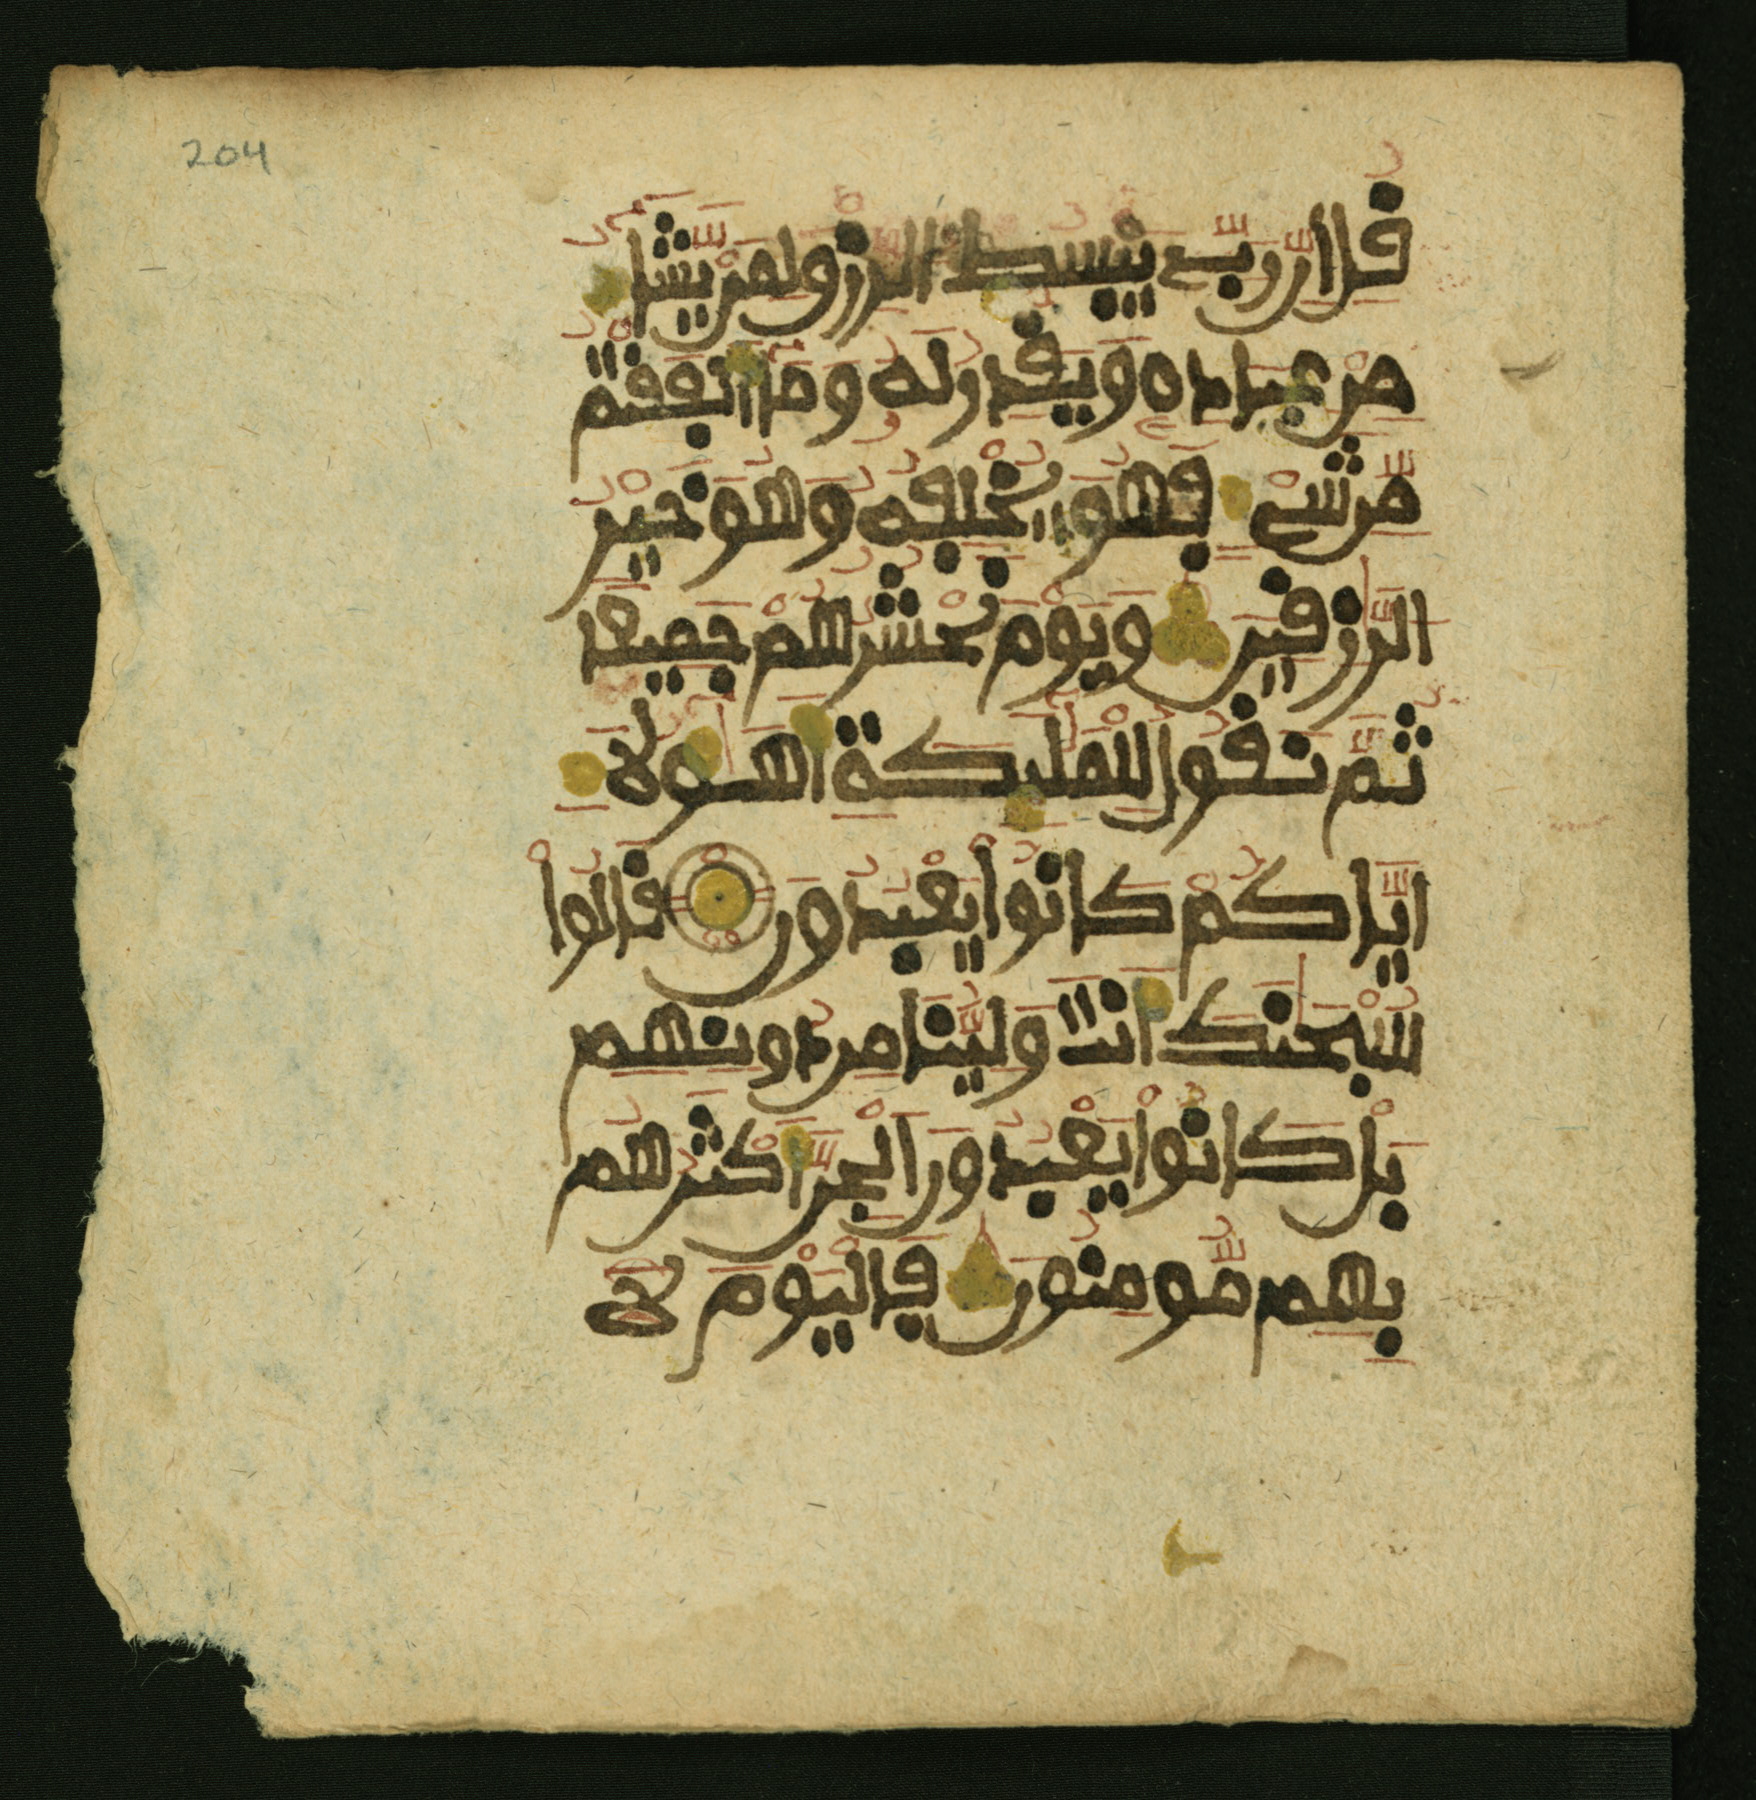 204
قُلِ انَّ رَبِّے يَبْسُطُ الرِّزْقَ لِمَنْ يَّشَآءُ
مِنْ عِبَادِهِ وَيَقْدِرُ لَهُ وَمَآ أَنفَقْتُم
مِّن شَےْءٍ فَهُوَ يُخْلِفُهُ وَهُوَ خَيْرُ
الرَّٰزِقِينَ وَيَوْمَ نَحْشُرُهُمْ جَمِيعًا
ثُمَّ نَقُولُ لِلْمَلَٰٓئِكَةِ أَهَٰٓؤُلَآءِ
إِيَّاكُمْ كَانُوا يَعْبُدُونَ قَالُوا
سُبْحَٰنَكَ أَنتَ وَلِيُّنَا مِن دُونِهِم
بَلْ كَانُوا يَعْبُدُونَ الْجِنَّ أَكْثَرُهُم
بِهِم مُّومِنُونَ فَالْيَوْمَ لَا